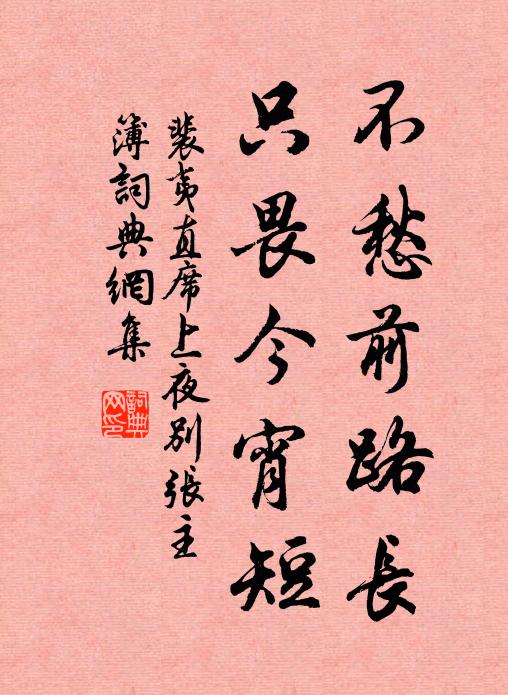 不愁前路長
只畏今宵短
裴夷直席上夜別張主
簿詞典網集
詞典
网印